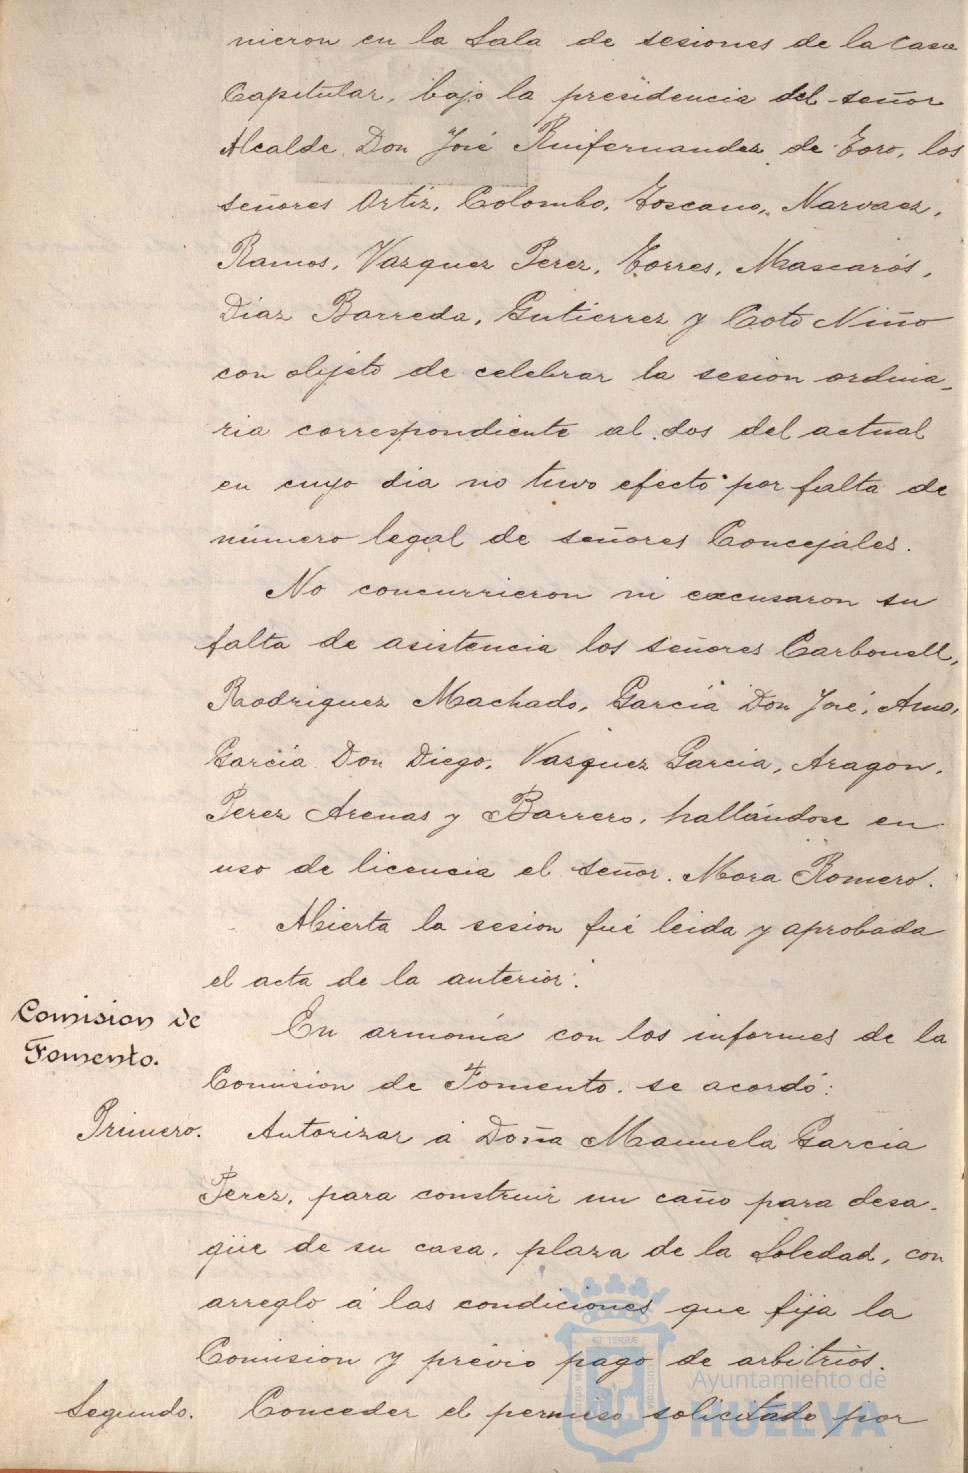 nieron en la Sala de sesiones de la Casa
Capitular, bajo la presidencia del señor
Alcalde Don José Ruifernandez de Toro, los
señores Ortiz, Colombo, Toscano, Narvaez,
Ramos, Vazquez Perez, Torres, Mascarós,
Diaz Barreda, Gutierrez y Coto Niño
con objeto de celebrar la sesion ordina-
ria correspondiente al dos del actual
en cuyo dia no tuvo efecto por falta de
número legal de señores Concejales.
No concurrieron ni excusaron su
falta de asistencia los señores Carbonell,
Rodriguez Machado, Garcia Don José, Amo,
Garcia Don Diego, Vazquez Garcia, Aragon,
Perez Arenas y Barrero, hallándose en
uso de licencia el señor Mora Romero.
Abierta la sesion fué leida y aprobada
el acta de la anterior.
Comision de
Fomento.
En armonía con los informes de la
Comision de Fomento, se acordó:
Primero. Autorizar á Doña Manuela Garcia
Perez, para construir un caño para desa-
güe de su casa, plaza de la Soledad, con
arreglo á las condiciones que fija la
Comision y prévio pago de arbitrios.
Segundo. Conceder el permiso solicitado por
Ayuntamiento de
HUELVA